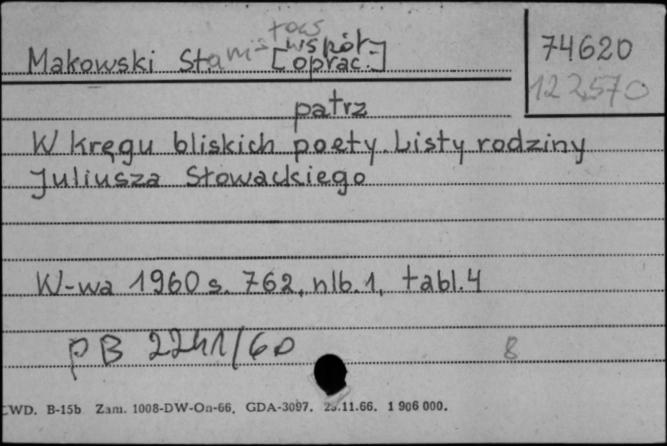 Makowski Stanisław [współ-
oprac.]
74620
122570
patrz
W kręgu bliskich poety. Listy rodziny
Juliusza Słowackiego
W-wa 1960 s. 762, nlb. 1, tabl. 4
pB 2241/60
8
CWD. B-15b Zam. 1008-DW-On-66. GDA-3097. 11.66. 1 906 000.